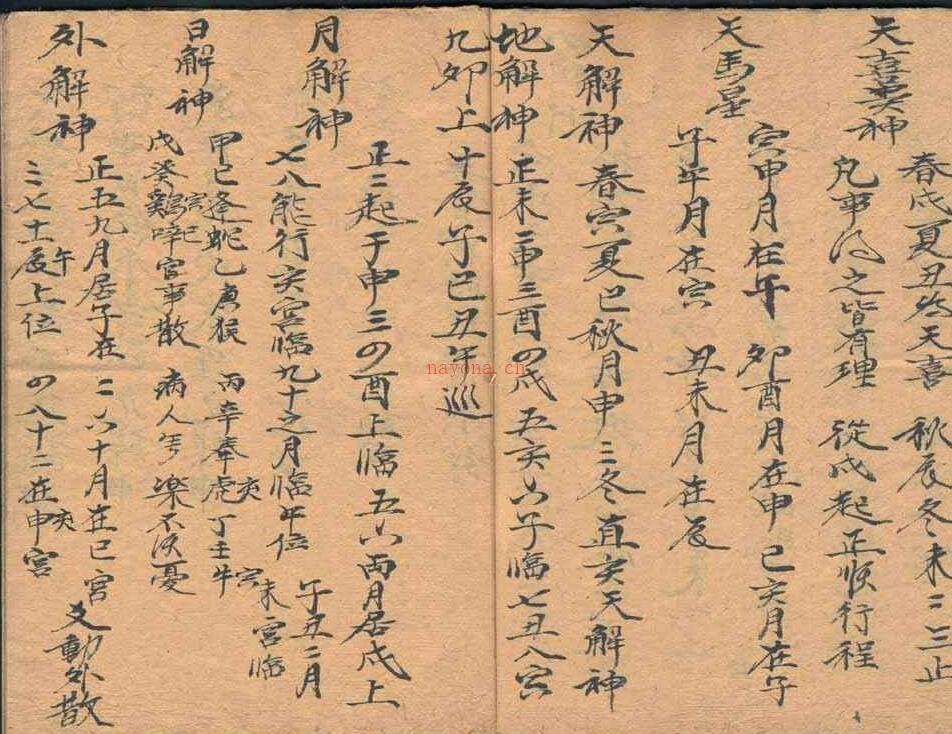 天喜星神
春戌夏丑為天喜 秋辰冬未二三止
凡事得之皆有理 從戌起正順行程
天馬星
寅申月在午 卯酉月在申 巳亥月在子
子午月在寅 丑未月在辰
天解神 春寅夏巳秋月申 三冬直亥天解神
地解神 正未二申三酉四戌五亥六子臨七丑八寅
九卯上十辰子巳丑午巡
月解神
正二起于申三四酉上臨五六兩月居戌上
七八能行亥宮臨九十之月臨午位 子丑二月未宮臨
日解神
甲巳逢蛇乙庚猴 丙辛奉虎亥丁壬牛寅
戊癸鷄寅巳啼官事散 病人年樂不須憂
外解神
正五九月居子在 二六十月在巳宮
三七十一辰午上位 四八十二在申亥宮
爻動外散
nayona.cn